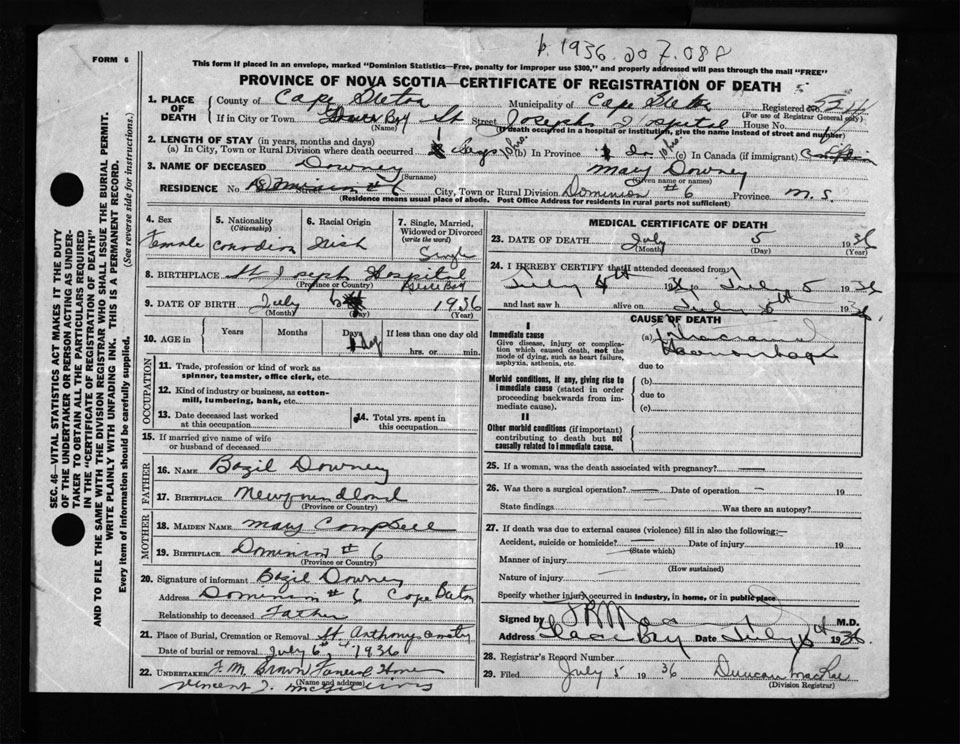 1936
FORM 6
This form if placed in an envelope, marked "Dominion Statistics—Free, penalty for improper use $300," and properly addressed will pass through the mail "FREE"
PROVINCE OF NOVA SCOTIA—CERTIFICATE OF REGISTRATION OF DEATH
1. PLACE OF DEATH
County of Cape Breton Municipality of Cape Breton Registered No.
(For use of Registrar General only)
If in City or Town Glace Bay St Street Josephs Hospital House No.
(Name) (If death occurred in a hospital or institution, give the name instead of street and number)
2. LENGTH OF STAY (in years, months and days)
(a) In City, Town or Rural Division where death occurred days (b) In Province (c) In Canada (if immigrant)
3. NAME OF DECEASED Downey Mary Downey
(Surname) (Given name or names)
RESIDENCE No. Dominion # 6 Street City, Town or Rural Division Dominion # 6 Province N.S.
(Residence means usual place of abode. Post Office Address for residents in rural parts not sufficient)
4. Sex
Female
5. Nationality
(Citizenship)
Canadian
6. Racial Origin
Irish
7. Single, Married, Widowed or Divorced
(write the word)
Single
8. BIRTHPLACE St Joseph Hospital
(Province or Country) Glace Bay
9. DATE OF BIRTH July 1936
(Month) (Day) (Year)
10. AGE in
Years
Months
Days
1 day
If less than one day old
hrs. or min.
OCCUPATION
11. Trade, profession or kind of work as
spinner, teamster, office clerk, etc.
12. Kind of industry or business, as cotton-
mill, lumbering, bank, etc.
13. Date deceased last worked
at this occupation
14. Total yrs. spent in
this occupation
15. If married give name of wife
or husband of deceased
FATHER
16. NAME Bazil Downey
17. BIRTHPLACE Newfoundland
(Province or Country)
MOTHER
18. MAIDEN NAME Mary Campbell
19. BIRTHPLACE Dominion # 6
(Province or Country)
20. Signature of informant Bazil Downey
Address Dominion # 6 Cape Breton
Relationship to deceased Father
21. Place of Burial, Cremation or Removal St. Anthony Cemetery
Date of burial or removal July 6 1936
22. UNDERTAKER F. M. Brown Funeral Home
(Name and address)
Vincent J.
MEDICAL CERTIFICATE OF DEATH
23. DATE OF DEATH July 5 1936
(Month) (Day) (Year)
24. I HEREBY CERTIFY that I attended deceased from
July 4th 1936 to July 5 1936
and last saw h alive on July 5th 1936.
CAUSE OF DEATH
I
Immediate cause
Give disease, injury or complication which caused death, not the mode of dying, such as heart failure, asphyxia, asthenia, etc.
(a) Intracranial
Haemorrhage
due to
Morbid conditions, if any, giving rise to immediate cause (stated in order proceeding backwards from immediate cause).
(b)
due to
(c)
II
Other morbid conditions (if important) contributing to death but not causally related to immediate cause.
25. If a woman, was the death associated with pregnancy?
26. Was there a surgical operation? Date of operation 19
State findings Was there an autopsy?
27. If death was due to external causes (violence) fill in also the following:—
Accident, suicide or homicide? Date of injury 19
(State which)
Manner of injury
(How sustained)
Nature of injury
Specify whether injury occurred in industry, in home, or in public place
Signed by M.D.
Address Glace Bay Date July 1936
28. Registrar's Record Number
29. Filed July 5 1936 Duncan MacRae
(Division Registrar)
SEC. 46—VITAL STATISTICS ACT MAKES IT THE DUTY
OF THE UNDERTAKER OR PERSON ACTING AS UNDER-
TAKER TO OBTAIN ALL THE PARTICULARS REQUIRED
IN THE "CERTIFICATE OF REGISTRATION OF DEATH"
AND TO FILE THE SAME WITH THE DIVISION REGISTRAR WHO SHALL ISSUE THE BURIAL PERMIT.
WRITE PLAINLY WITH UNFADING INK. THIS IS A PERMANENT RECORD.
Every item of information should be carefully supplied. (See reverse side for instructions.)